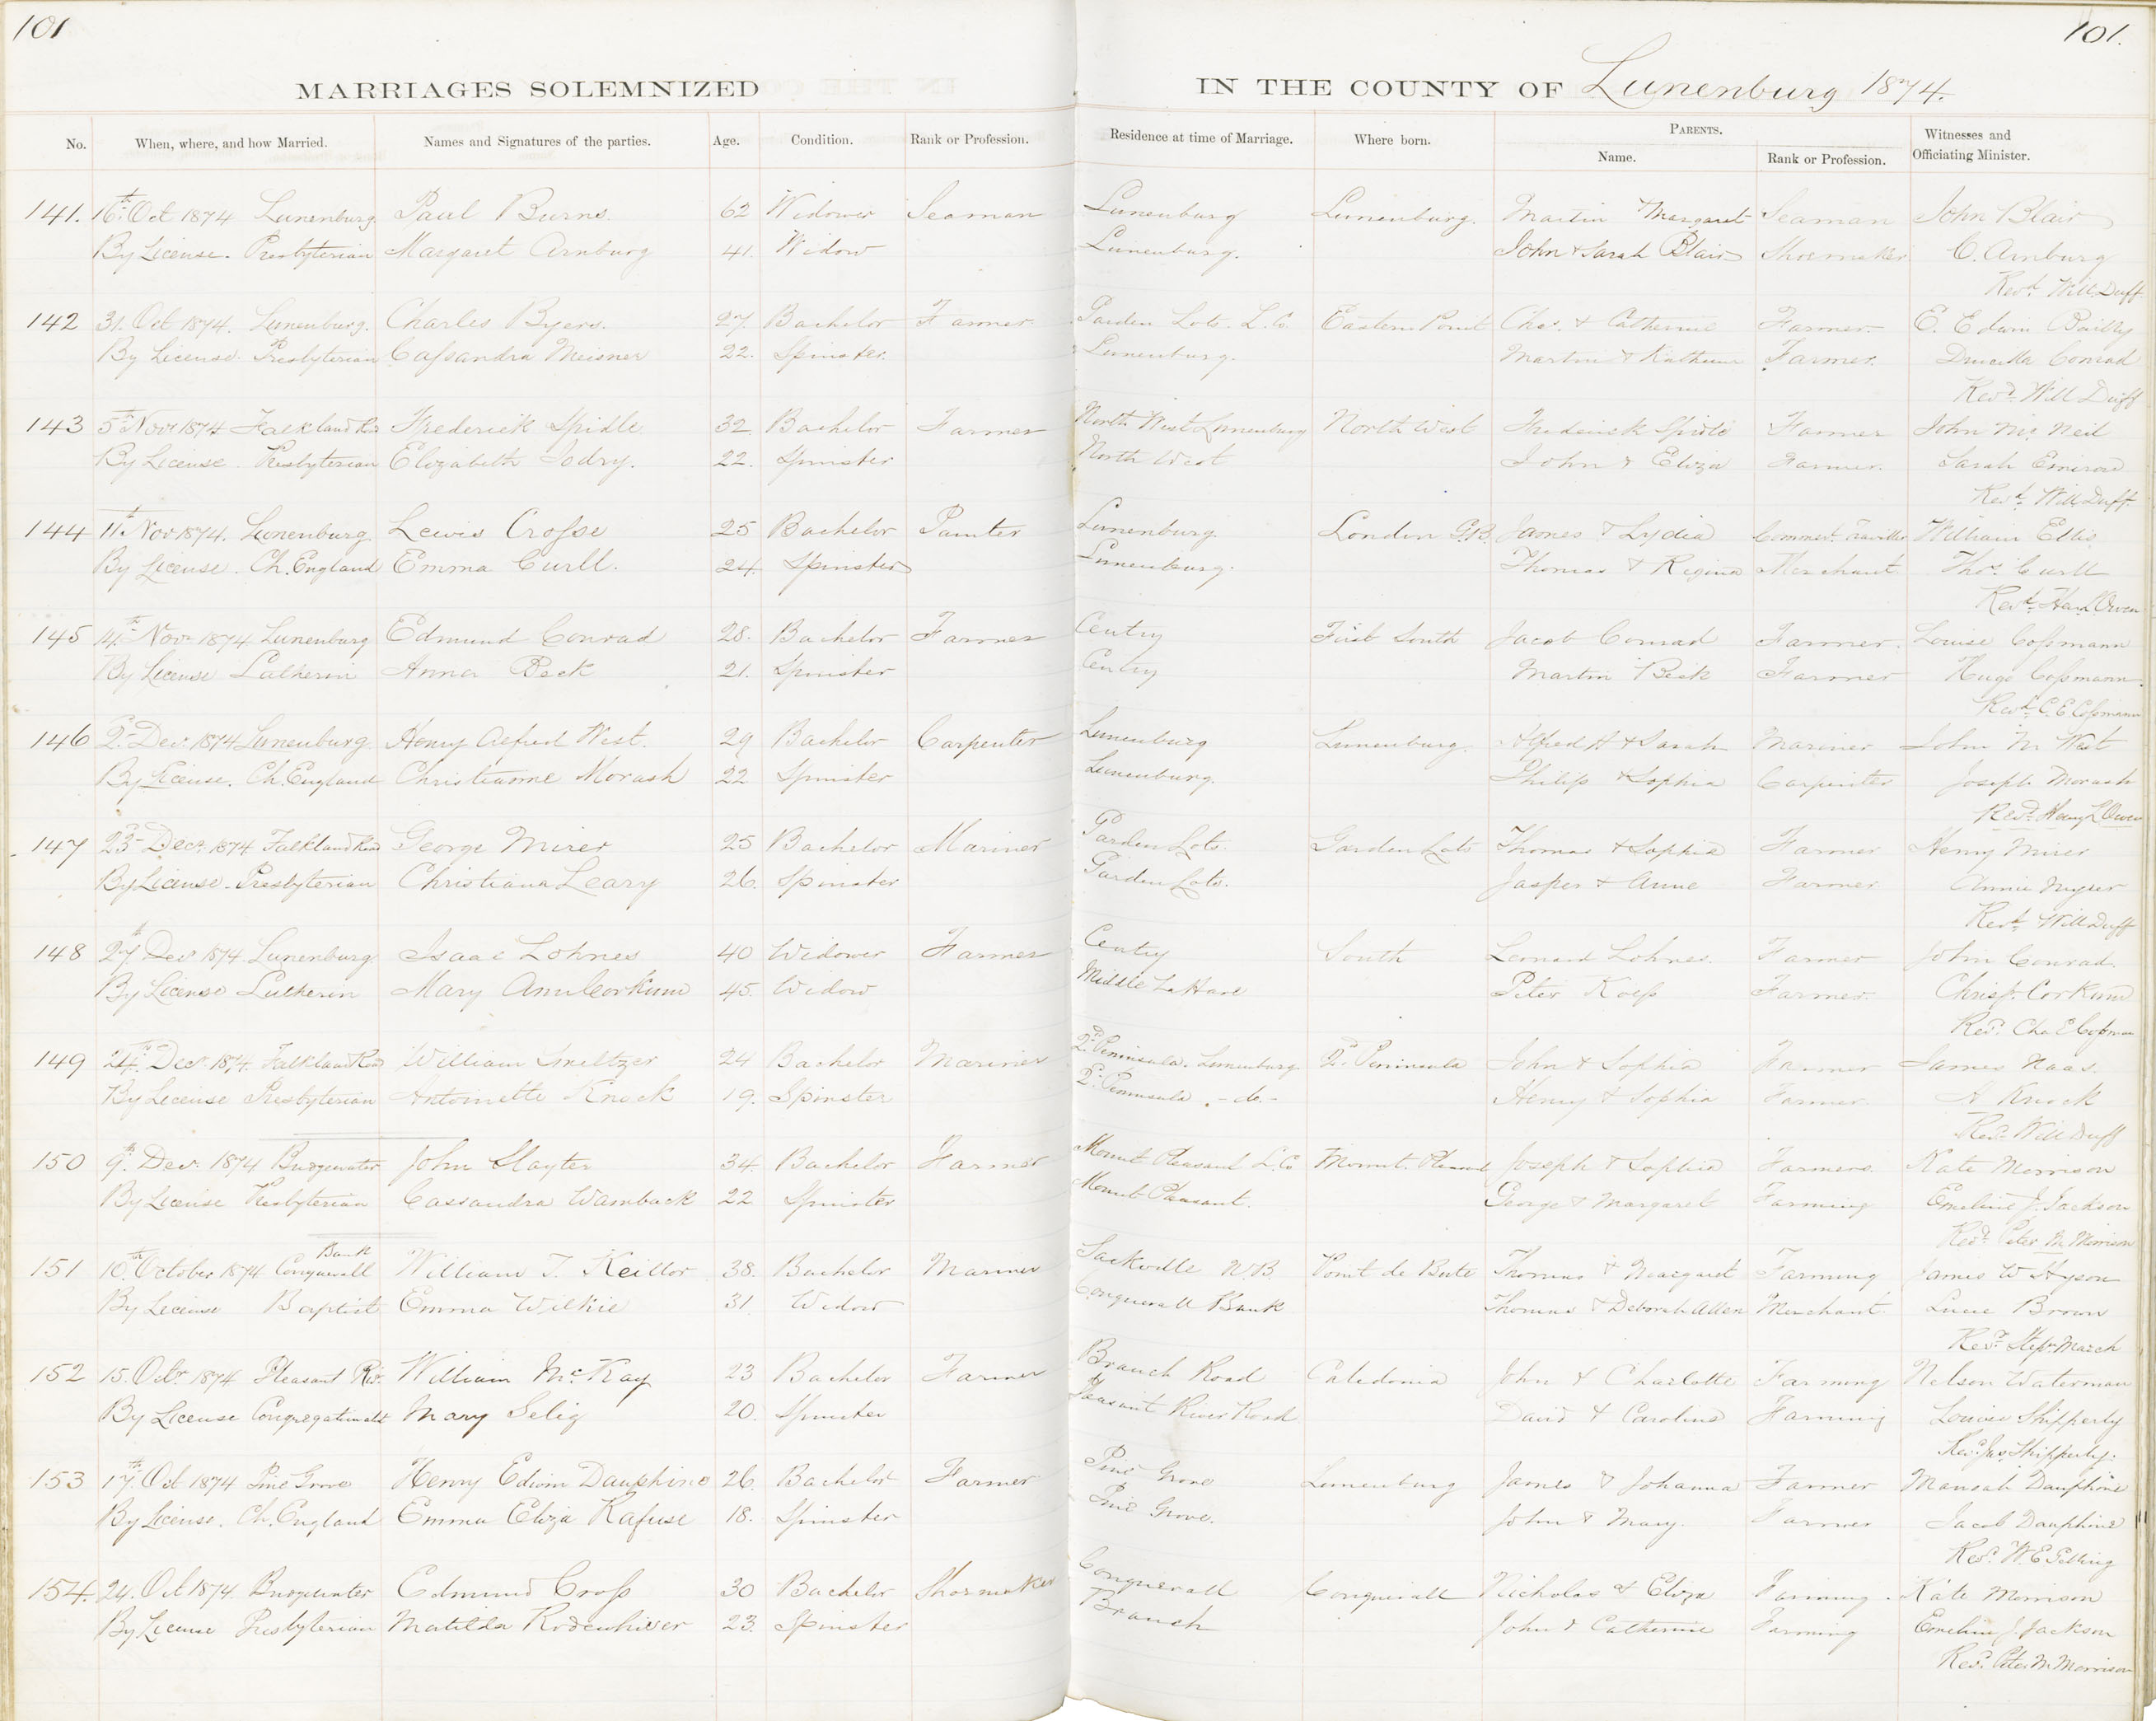 101
101.
MARRIAGES SOLEMNIZED IN THE COUNTY OF Lunenburg 1874.
No. When, where, and how Married. Names and Signatures of the parties. Age. Condition. Rank or Profession. Residence at time of Marriage. Where born. PARENTS. Witnesses and
Name. Rank or Profession. Officiating Minister.
141. 16th Oct 1874 Lunenburg. Paul Burns. 62 Widower Seaman Lunenburg Lunenburg. Martin Margaret Seaman John Blair
By License. Presbyterian Margaret Arnburg 41. Widow Lunenburg. John & Sarah Blair Shoemaker C. Arnburg
Revd. Will. Duff
142 31. Oct 1874. Lunenburg. Charles Byers. 27. Bachelor Farmer Garden Lots. L. Co. Eastern Point Chas. & Catherine Farmer. E. Edwin Bailly
By License. Presbyterian Caſsandra Meisner 22. Spinster. Lunenburg. Martin & Farmer. Drucilla Conrad
Revd. Will Duff
143 5th Novr 1874 Falkland Rd Frederick Spidle 32 Bachelor Farmer North West Lunenburg North West Frederick Spidle Farmer John McNeil
By License. Presbyterian Elizabeth Jodry. 22. Spinster North West John & Eliza Farmer. Sarah
Revd. Will. Duff.
144 11th Nov 1874. Lunenburg. Lewis Croſse 25 Bachelor Painter Lunenburg. London G.B. James & Lydia Commerl. Traveller William Ellis
By License. Ch. England Emma Curll. 24. Spinster Lunenburg. Thomas & Regina Merchant Thos. Curll
Revd. Owen
145 14th Novr 1874 Lunenburg Edmund Conrad 28. Bachelor Farmer Centry First South Jacob Conrad Farmer. Louise Coſsmann
By License Lutherin Anna Beck 21. Spinster Centry Martin Beck Farmer Hugo Coſsmann.
Revd. C. E. Coſsmann
146 2d. Decr. 1874 Lunenburg. Henry Alfred West. 29 Bachelor Carpenter Lunenburg Lunenburg. Alfred H & Sarah Mariner John M West
By License. Ch. England Christianne Morash 22 Spinster Lunenburg. Philip & Sophia Carpenter Joseph Morash
Revd. Henry L Owen
147 23d Decr. 1874 Falkland Road George Mirer 25 Bachelor Mariner Garden Lots. Garden Lots Thomas & Sophia Farmer Henry Mirer
By License. Presbyterian Christiana Leary 26. Spinster Garden Lots. Jasper & Anne Farmer Annie
Revd. Will Duff
148 27th Decr 1874 Lunenburg Isaac Lohnes 40 Widower Farmer Centry South Leonard Lohnes. Farmer John Conrad.
By License Lutherin Mary Ann Corkum 45. Widow Middle LaHave Peter Farmer. Chrisr. Corkum
Revd. Chs. E Coſsmann
149 24th. Decr. 1874. Falkland Rd William Smeltzer 24 Bachelor Mariner 2d. Peninsula. Lunenburg. 2d. Peninsula John & Sophia Farmer James Haas.
By License Presbyterian Antoinette Knock 19. Spinster 2d. Peninsula. - do. - Henry & Sophia Farmer. A Knock
Revd. Will Duff
150 9th. Decr. 1874 Bridgewater John Slayter 34. Bachelor Farmer Mount Pleasant L. Co Mount. Pleasant Joseph & Sophia Farmers. Kate Morrison
By License Presbyterian Cassandra Wamback 22 Spinster Mount Pleasant. George & Margaret Farming Emeline J. Jackson
Revd. Peter M. Morrison
151 10th. October 1874 Conquerall Bank William T. Keillor 38. Bachelor Mariner Sackville N.B. Point de Bute Thomas & Margaret Farming James W Hyson
By License Baptist Emma Wilkie 31. Widow Conquerall Bank Thomas & Deborah Allen Merchant. Lucie Brown
Revd. Stepn. March
152 15. Octr. 1874 Pleasant Rivr. William McKay 23 Bachelor Farmer Branch Road Caledonia John & Charlotte Farming Nelson Waterman
By License Congregationalist Mary Selig 20. Spinster Pleasant River Road David & Caroline Farming Louise Shipperly
Revd. Jas. Shipperly.
153 17th. Oct 1874 Pine Grove Henry Edwin Dauphine 26. Bachelor Farmer Pine Grove Lunenburg James & Johanna Farmer Manoah Dauphine
By License. Ch. England Emma Eliza Rafuse 18. Spinster Pine Grove. John & Mary. Farmer Jacob Dauphine
Revd. W. E. Gelling
154. 24. Oct 1874. Bridgewater Edmund Croſs 30 Bachelor Shoemaker Conquerall Conquerall Nicholas & Eliza Farming. Kate Morrison
By License Presbyterian Matilda Rodenhiser 23. Spinster Branch John & Catherine Farming Emeline J. Jackson
Revd. Peter M. Morrison